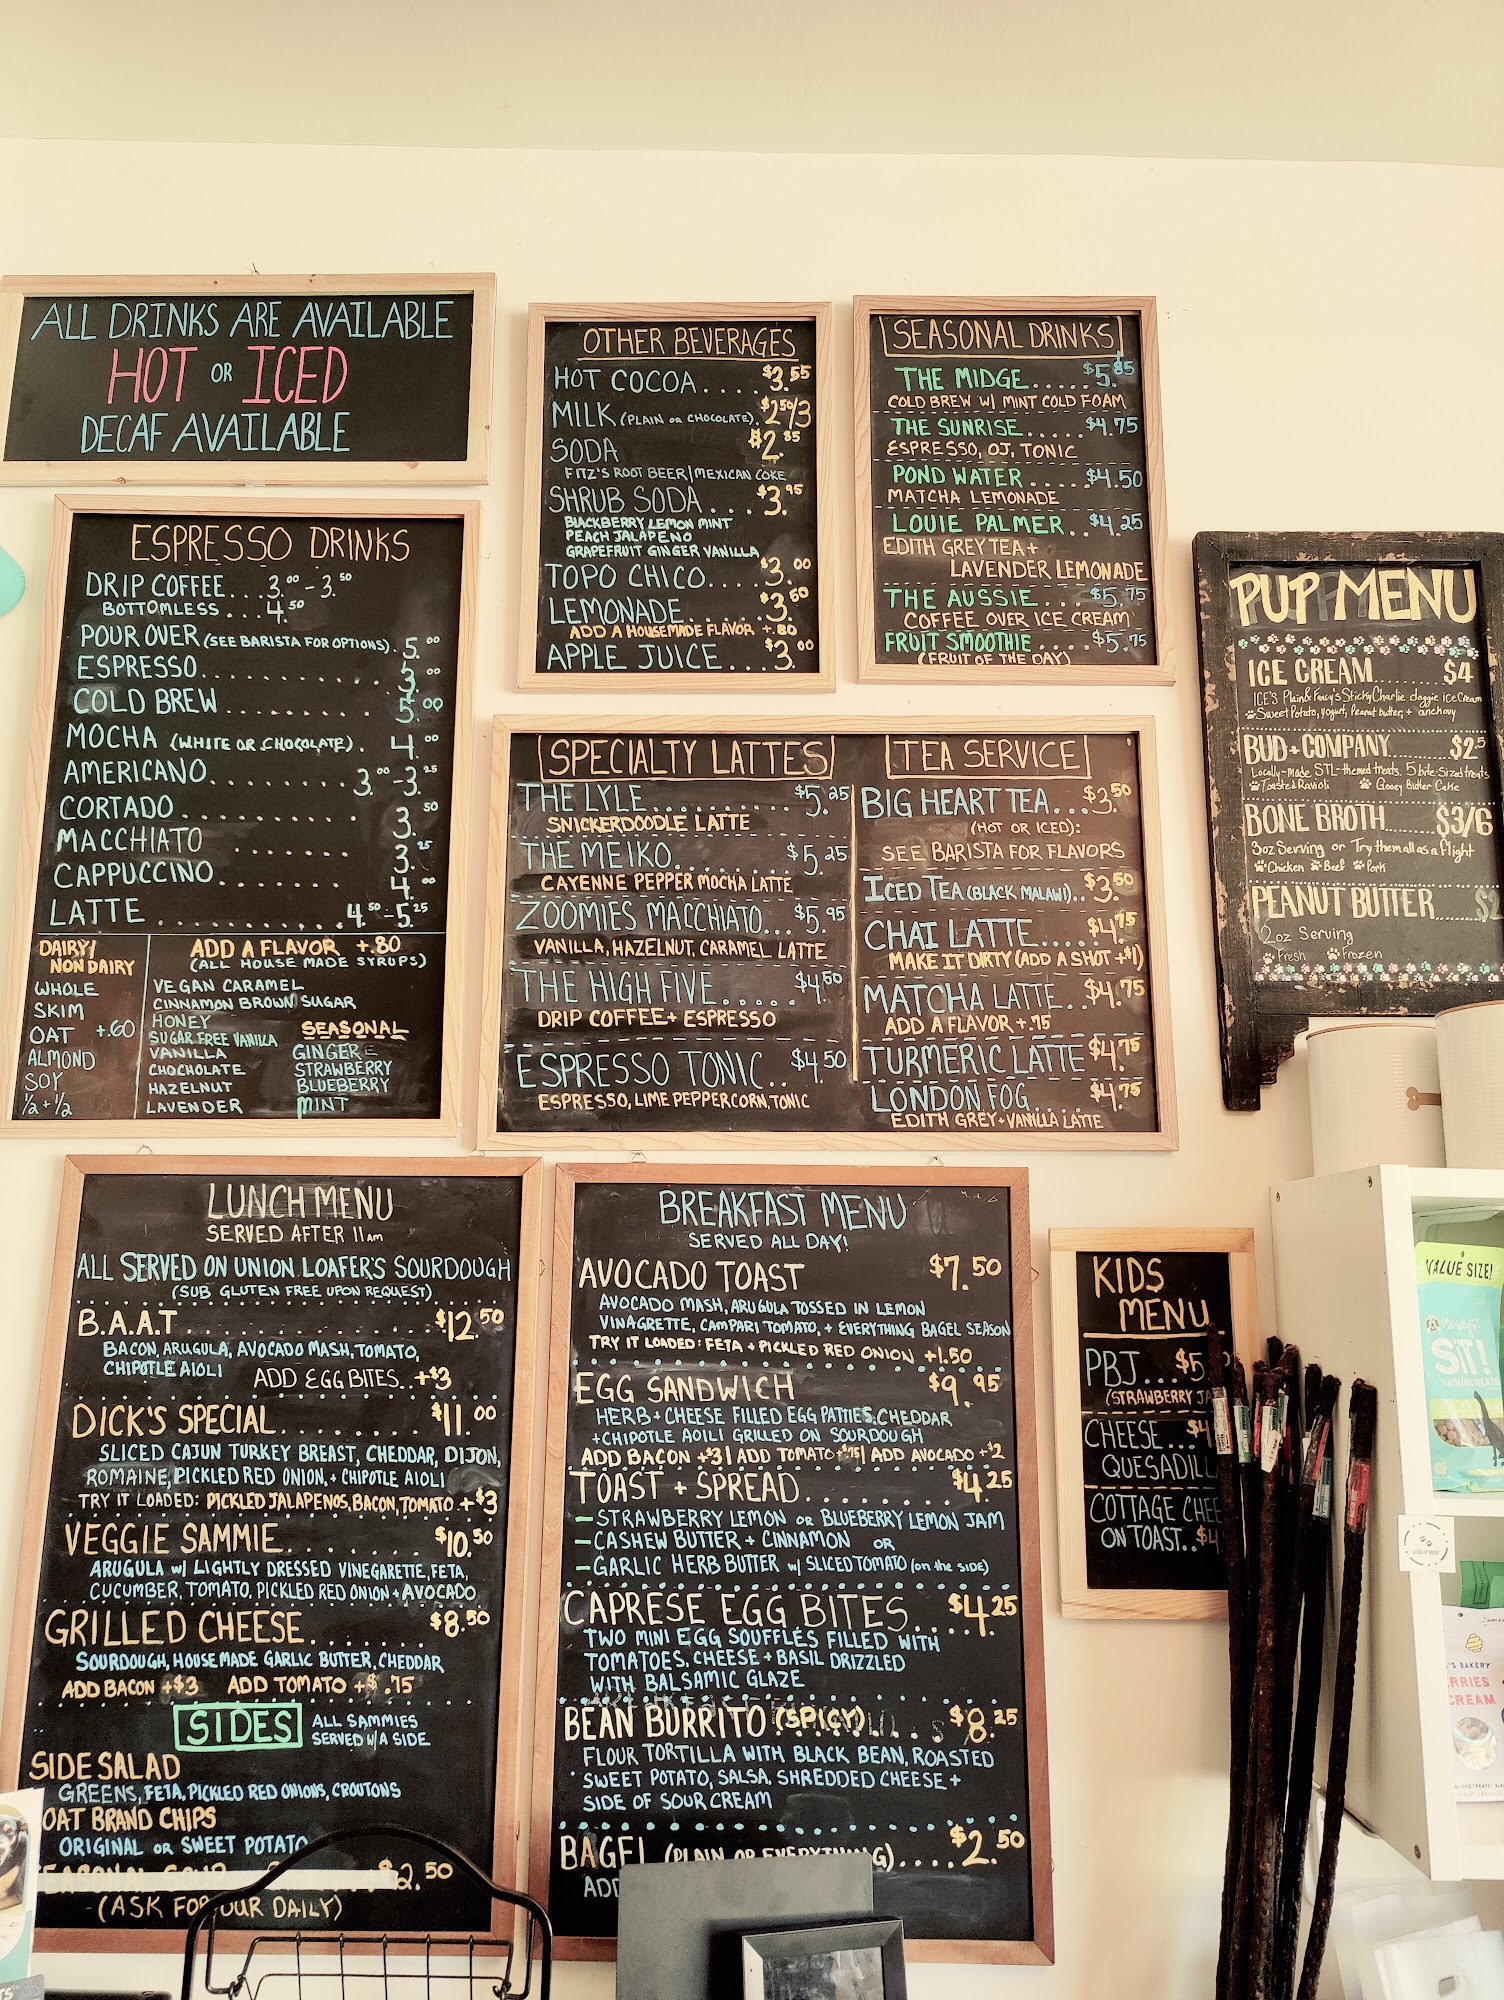 ALL DRINKS ARE AVAILABLE
HOT OR ICED
DECAF AVAILABLE
ESPRESSO DRINKS
DRIP COFFEE...3.00-3.50
BOTTOMLESS...4.50
POUR OVER (SEE BARISTA FOR OPTIONS). 5.00
ESPRESSO............3.00
COLD BREW........5.00
MOCHA (WHITE OR CHOCOLATE). 4.00
AMERICANO........3.00-3.25
CORTADO..........3.50
MACCHIATO .......3.25
CAPPUCCINO.......4.00
LATTE ...........4.50-5.25
DAIRY/
NON DAIRY
WHOLE
SKIM
OAT +.60
ALMOND
SOY
½+½
ADD A FLAVOR +.80
(ALL HOUSE MADE SYRUPS)
VEGAN CARAMEL
CINNAMON BROWN SUGAR
HONEY
SUGAR FREE VANILLA
VANILLA
CHOCHOLATE
HAZELNUT
LAVENDER
SEASONAL
GINGER
STRAWBERRY
BLUEBERRY
MINT
OTHER BEVERAGES
HOT COCOA....$3.55
MILK (PLAIN OR CHOCOLATE).$2.50/3
SODA $2.85
FITZ'S ROOT BEER/MEXICAN COKE
SHRUB SODA...$3.95
BLACKBERRY LEMON MINT
PEACH JALAPENO
GRAPEFRUIT GINGER VANILLA
TOPO CHICO....$3.00
LEMONADE......$3.50
ADD A HOUSEMADE FLAVOR +.80
APPLE JUICE...$3.00
SEASONAL DRINKS
THE MIDGE.....$5.85
COLD BREW W/ MINT COLD FOAM
THE SUNRISE.....$4.75
ESPRESSO, OJ, TONIC
POND WATER.....$4.50
MATCHA LEMONADE
LOUIE PALMER..$4.25
EDITH GREY TEA+
LAVENDER LEMONADE
THE AUSSIE...$5.75
COFFEE OVER ICE CREAM
FRUIT SMOOTHIE....$5.75
(FRUIT OF THE DAY)
SPECIALTY LATTES
THE LYLE..........$5.25
SNICKERDOODLE LATTE
THE MEIKO.......$5.25
CAYENNE PEPPER MOCHA LATTE
ZOOMIES MACCHIATO...$5.95
VANILLA, HAZELNUT, CARAMEL LATTE
THE HIGH FIVE.....$4.50
DRIP COFFEE+ ESPRESSO
ESPRESSO TONIC..$4.50
ESPRESSO, LIME PEPPERCORN, TONIC
TEA SERVICE
BIG HEART TEA...$3.50
(HOT OR ICED):
SEE BARISTA FOR FLAVORS
ICED TEA (BLACK MALAWI)..$3.50
CHAI LATTE.....$4.75
MAKE IT DIRTY (ADD A SHOT +$1)
MATCHA LATTE..$4.75
ADD A FLAVOR +.75
TURMERIC LATTE $4.75
LONDON FOG....$4.75
EDITH GREY+VANILLA LATTE
PUP MENU
ICE CREAM........$4
ICE'S Plain & Fancy's Sticky Charlie doggie ice cream
Sweet Potato, yogurt, Peanut butter, + anchovy
BUD+COMPANY........$2.5
Locally-made STL-themed treats. 5 bite-sized treats
Toasted Ravioli Gooey Butter Cake
BONE BROTH........$3/6
3oz Serving or Try them all as a flight
Chicken Beef Pork
PEANUT BUTTER......$2
2oz Serving
Fresh Frozen
LUNCH MENU
SERVED AFTER 11AM
ALL SERVED ON UNION LOAFER'S SOURDOUGH
(SUB GLUTEN FREE UPON REQUEST)
B.A.A.T................$12.50
BACON, ARUGULA, AVOCADO MASH, TOMATO,
CHIPOTLE AIOLI ADD EGG BITES..+$3
DICK'S SPECIAL........$11.00
SLICED CAJUN TURKEY BREAST, CHEDDAR, DIJON,
ROMAINE, PICKLED RED ONION, + CHIPOTLE AIOLI
TRY IT LOADED: PICKLED JALAPENOS, BACON, TOMATO.+$3
VEGGIE SAMMIE.......$10.50
ARUGULA W/ LIGHTLY DRESSED VINEGARETTE, FETA,
CUCUMBER, TOMATO, PICKLED RED ONION+AVOCADO
GRILLED CHEESE.......$8.50
SOURDOUGH, HOUSEMADE GARLIC BUTTER, CHEDDAR
ADD BACON +$3 ADD TOMATO +$.75
SIDES ALL SAMMIES
SERVED W/A SIDE
SIDE SALAD
GREENS, FETA, PICKLED RED ONIONS, CROUTONS
OAT BRAND CHIPS
ORIGINAL OR SWEET POTATO
SEASONAL SOUP $2.50
(ASK FOR OUR DAILY)
BREAKFAST MENU
SERVED ALL DAY!
AVOCADO TOAST $7.50
AVOCADO MASH, ARUGULA TOSSED IN LEMON
VINAGRETTE, CAMPARI TOMATO, + EVERYTHING BAGEL SEASON
TRY IT LOADED: FETA + PICKLED RED ONION +1.50
EGG SANDWICH $9.95
HERB + CHEESE FILLED EGG PATTIES, CHEDDAR
+CHIPOTLE AOILI GRILLED ON SOURDOUGH
ADD BACON +$3 | ADD TOMATO +$.75 | ADD AVOCADO +$2
TOAST + SPREAD........$4.25
-STRAWBERRY LEMON OR BLUEBERRY LEMON JAM
-CASHEW BUTTER + CINNAMON OR
-GARLIC HERB BUTTER W/ SLICED TOMATO (on the side)
CAPRESE EGG BITES...$4.25
TWO MINI EGG SOUFFLÉS FILLED WITH
TOMATOES, CHEESE + BASIL DRIZZLED
WITH BALSAMIC GLAZE
BEAN BURRITO (SPICY)...$8.25
FLOUR TORTILLA WITH BLACK BEAN, ROASTED
SWEET POTATO, SALSA, SHREDDED CHEESE +
SIDE OF SOUR CREAM
BAGEL (PLAIN OR EVERYTHING)....$2.50
ADD
KIDS
MENU
PBJ...$5
(STRAWBERRY JA
CHEESE...$4
QUESADILL
COTTAGE CHEE
ON TOAST..$4
VALUE SIZE!
SIT!
TRAINING TREATS
LOCALLY MADE
'S BAKERY
RRIES
CREAM